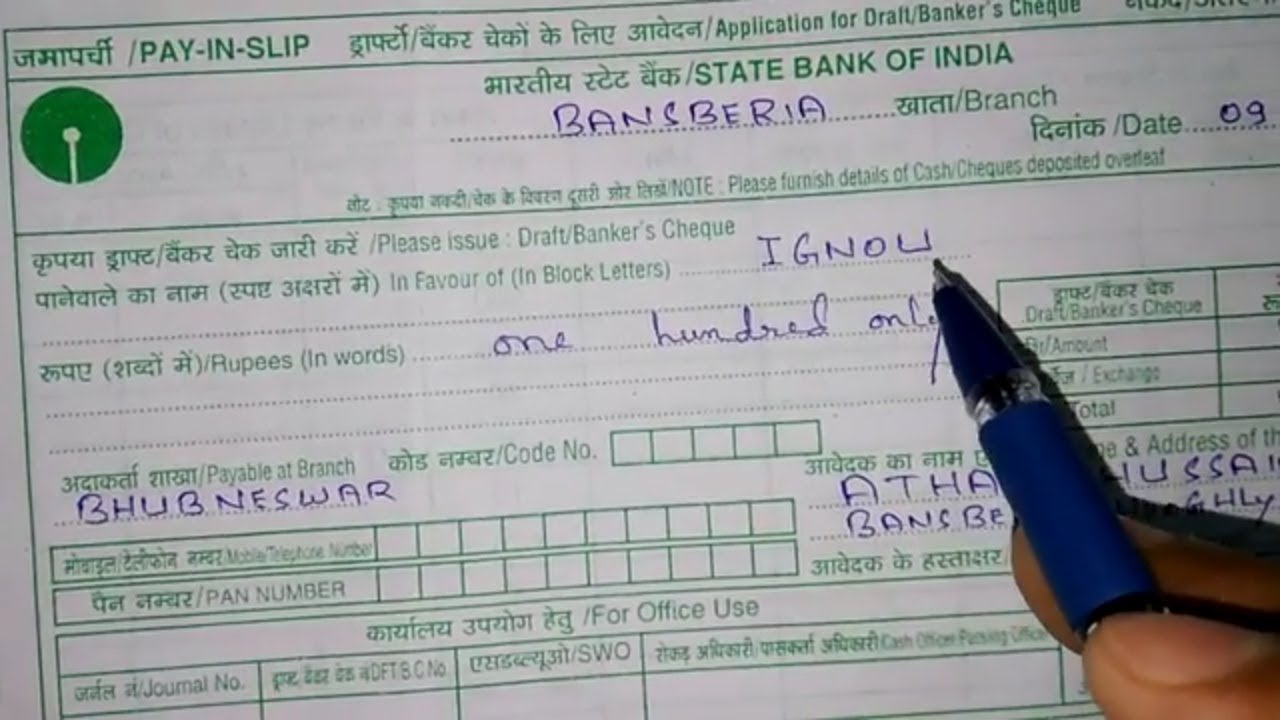 जमापर्ची /PAY-IN-SLIP ड्राफ्टों/बैंकर चेकों के लिए आवेदन/Application for Draft/Banker's Cheque
भारतीय स्टेट बैंक/STATE BANK OF INDIA
BANSBERIA खाता/Branch
दिनांक /Date 09
नोट : कृपया नकदी/चेक के विवरण दूसरी ओर लिखें/NOTE : Please furnish details of Cash/Cheques deposited overleaf
कृपया ड्राफ्ट/बैंकर चेक जारी करें /Please issue : Draft/Banker's Cheque
पानेवाले का नाम (स्पष्ट अक्षरों में) In Favour of (In Block Letters) IGNOU
रूपए (शब्दों में)/Rupees (In words) one hundred only
ड्राफ्ट/बैंकर चेक
Draft/Banker's Cheque
/Amount
/ Exchange
Total
अदाकर्ता शाखा/Payable at Branch कोड नम्बर/Code No.
BHUBNESWAR
आवेदक का नाम & Address of
ATHA HUSSAI
BANSBE GHLY
मोबाइल/टेलीफोन नम्बर/Mobile/Telephone Number
पैन नम्बर/PAN NUMBER
आवेदक के हस्ताक्षर/
कार्यालय उपयोग हेतु /For Office Use
जर्नल नं/Journal No.
एसडब्ल्यूओ/SWO
रोकड़ अधिकारी/पासकर्ता अधिकारी/Cash Officer/Passing Officer